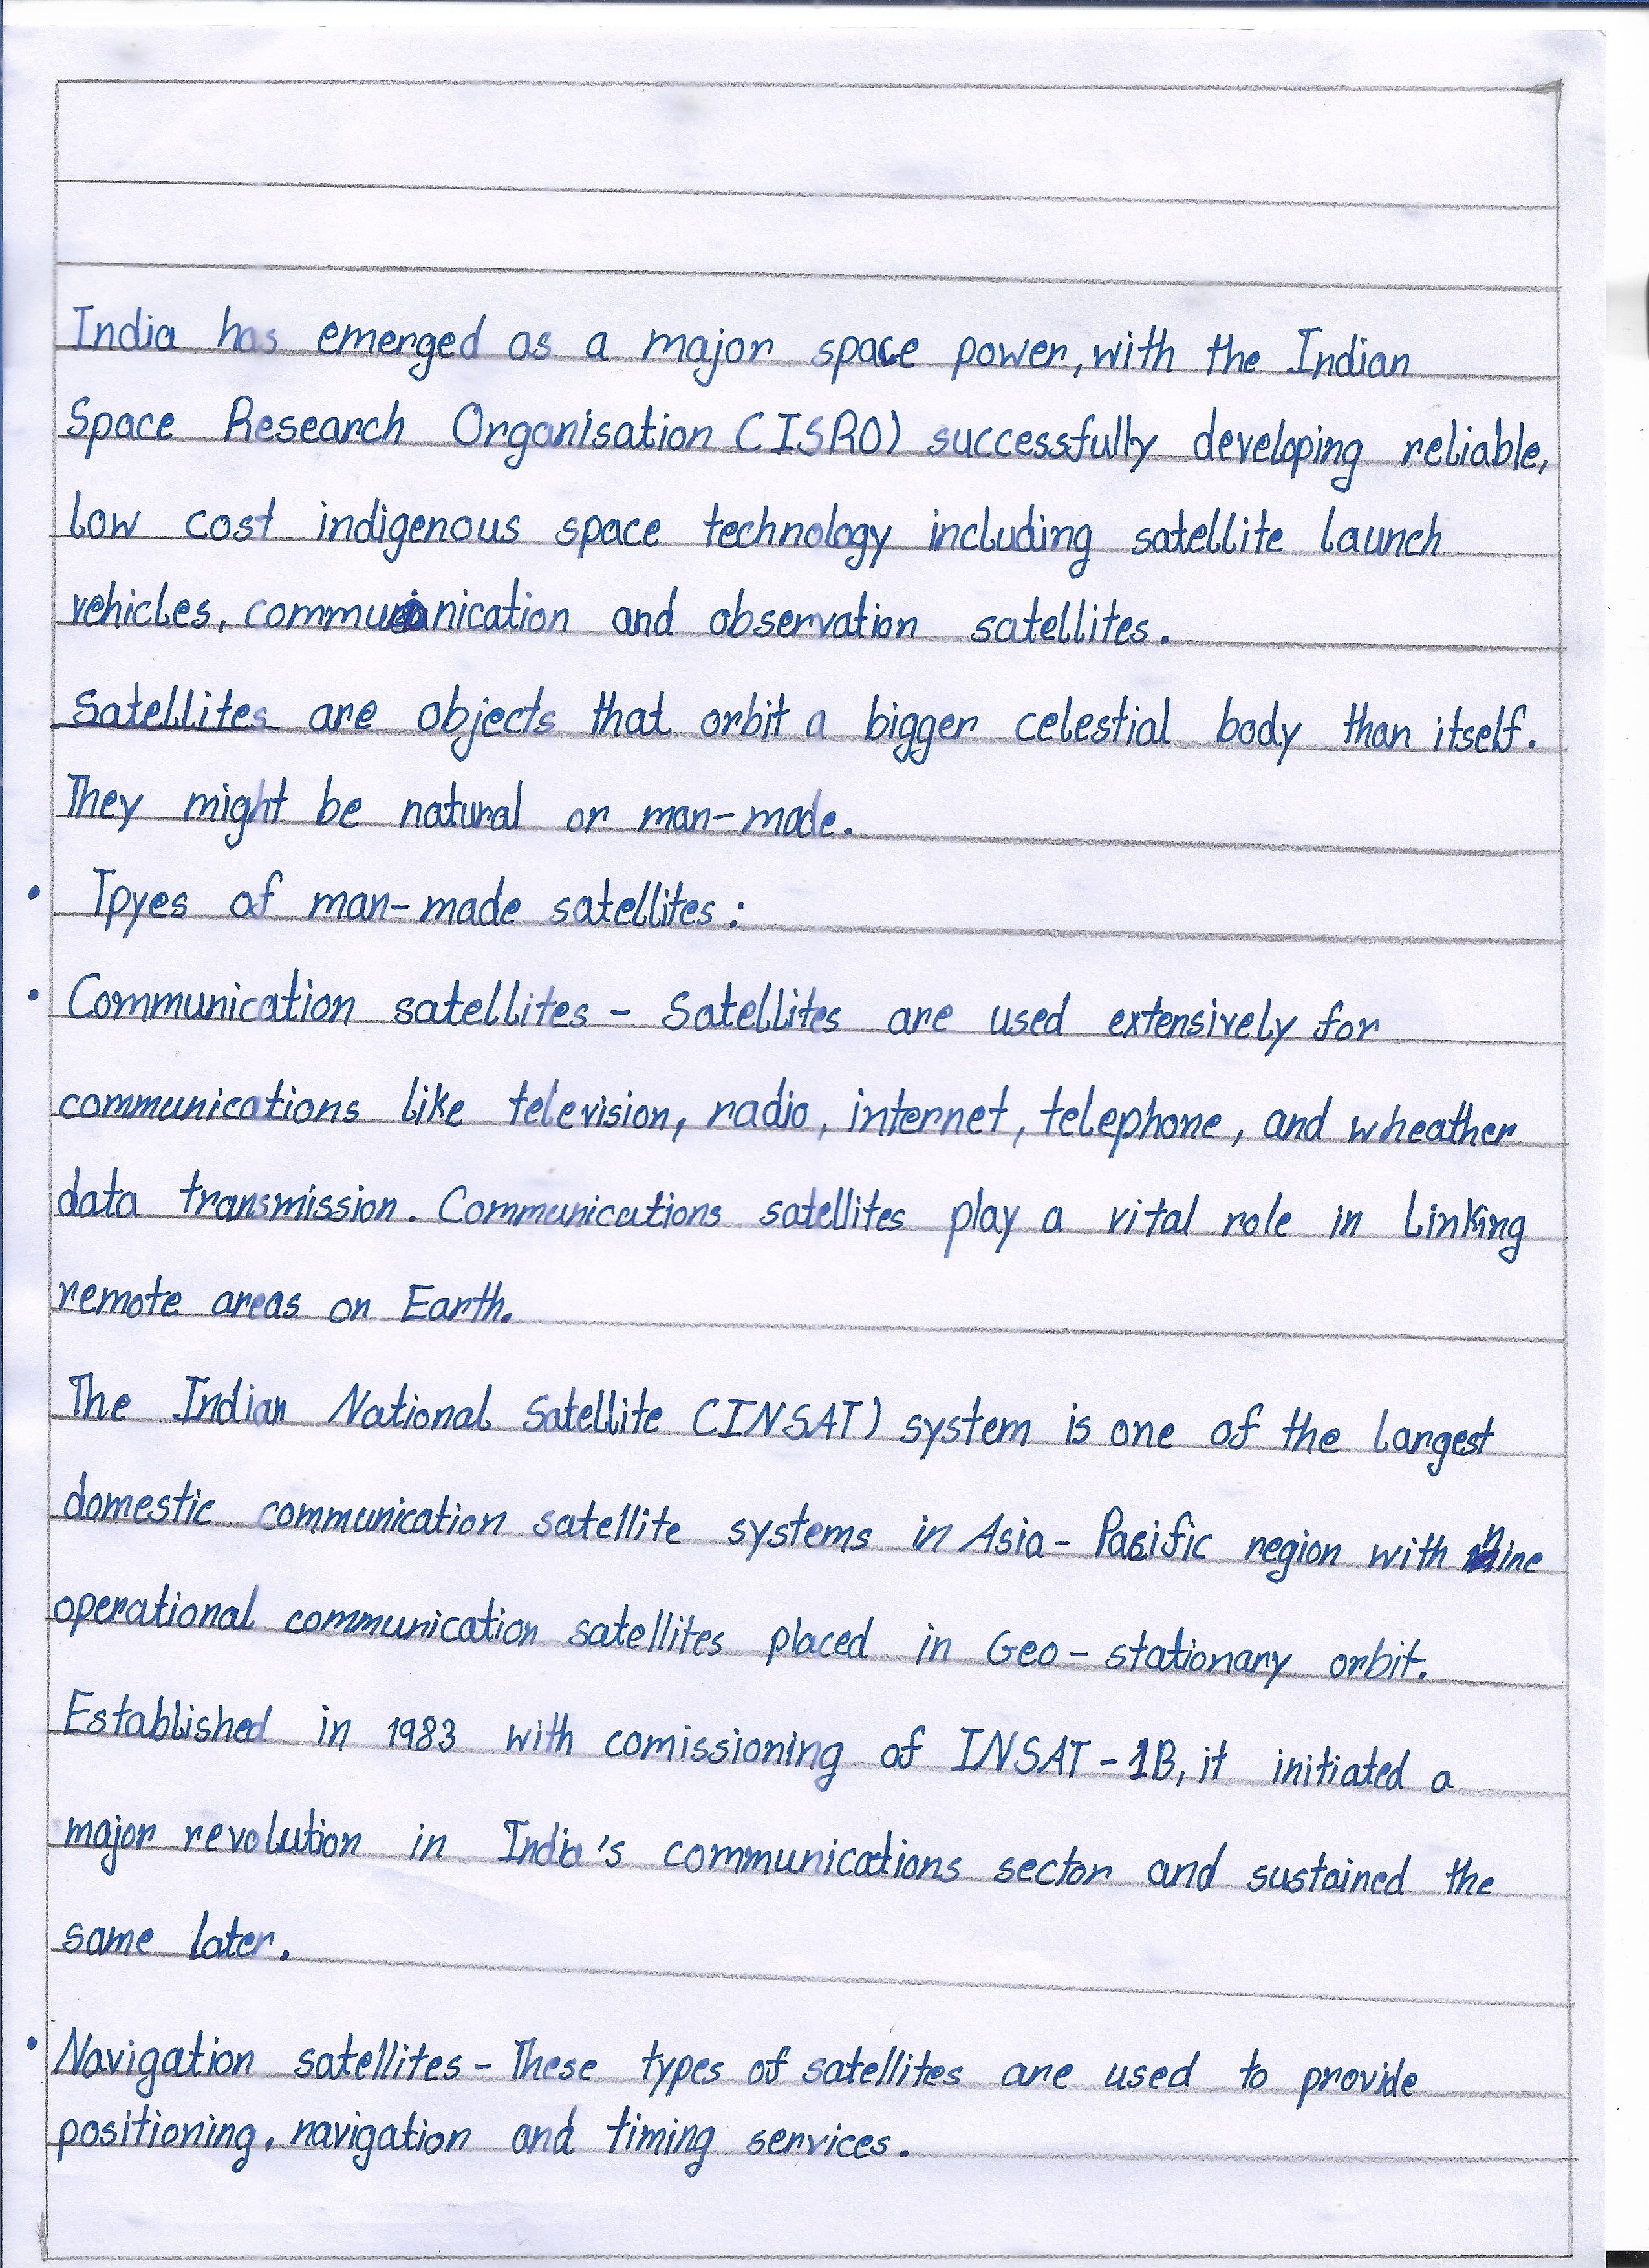 India has emerged as a major space power, with the Indian
Space Research Organisation (ISRO) successfully developing reliable,
low cost indigenous space technology including satellite launch
vehicles, communication and observation satellites.
Satellites are objects that orbit a bigger celestial body than itself.
They might be natural or man-made.
• Tpyes of man-made satellites :
• Communication satellites - Satellites are used extensively for
communications like television, radio, internet, telephone, and wheather
data transmission. Communications satellites play a vital role in linking
remote areas on Earth.
The Indian National Satellite (INSAT) system is one of the largest
domestic communication satellite systems in Asia - Pacific region with nine
operational communication satellites placed in Geo - stationary orbit.
Established in 1983 with comissioning of INSAT - 1B, it initiated a
major revolution in India's communications sector and sustained the
same later.
• Navigation satellites - These types of satellites are used to provide
positioning, navigation and timing services.